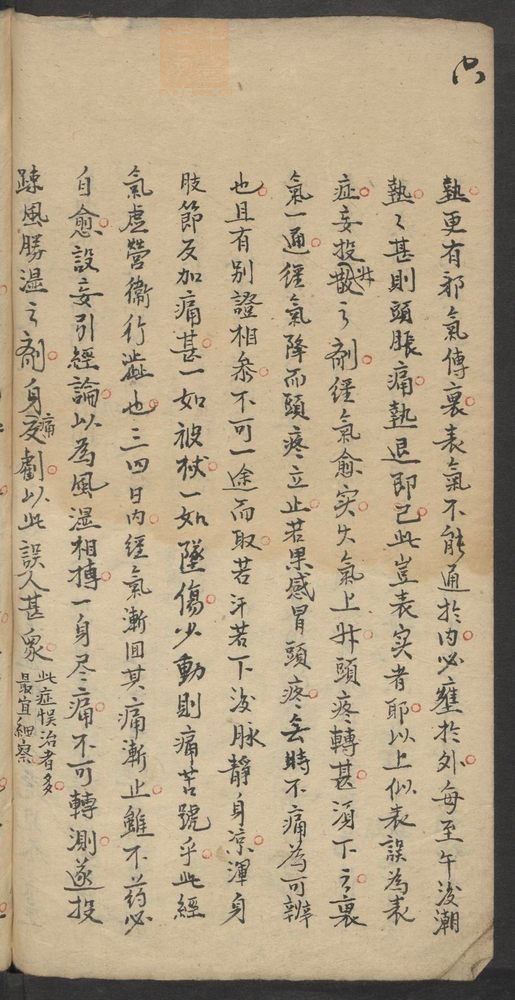 熱更有邪氣傳裏表氣不能通於内必壅於外每至午後潮
熱〻甚則頭脹痛熱退即已此豈表实者耶以上似表誤為表
症妄投升散之劑經氣愈实火氣上升頭疼轉甚須下之裏
氣一通經氣降而頭疼立止若果感冒頭疼無時不痛為可辨
也且有别證相叅不可一途而取若汗若下後脉靜身凉渾身
肢節反加痛甚一如被杖一如墜傷少動則痛苦號乎此經
氣虛營衞行澁也三四日内經氣漸囬其痛漸止雖不药必
自愈設妄引經論以為風湿相搏一身尽痛不可轉測遂投
踈風勝湿之劑身痛反劇以此誤人甚衆
此症悮治者多
最宜細察